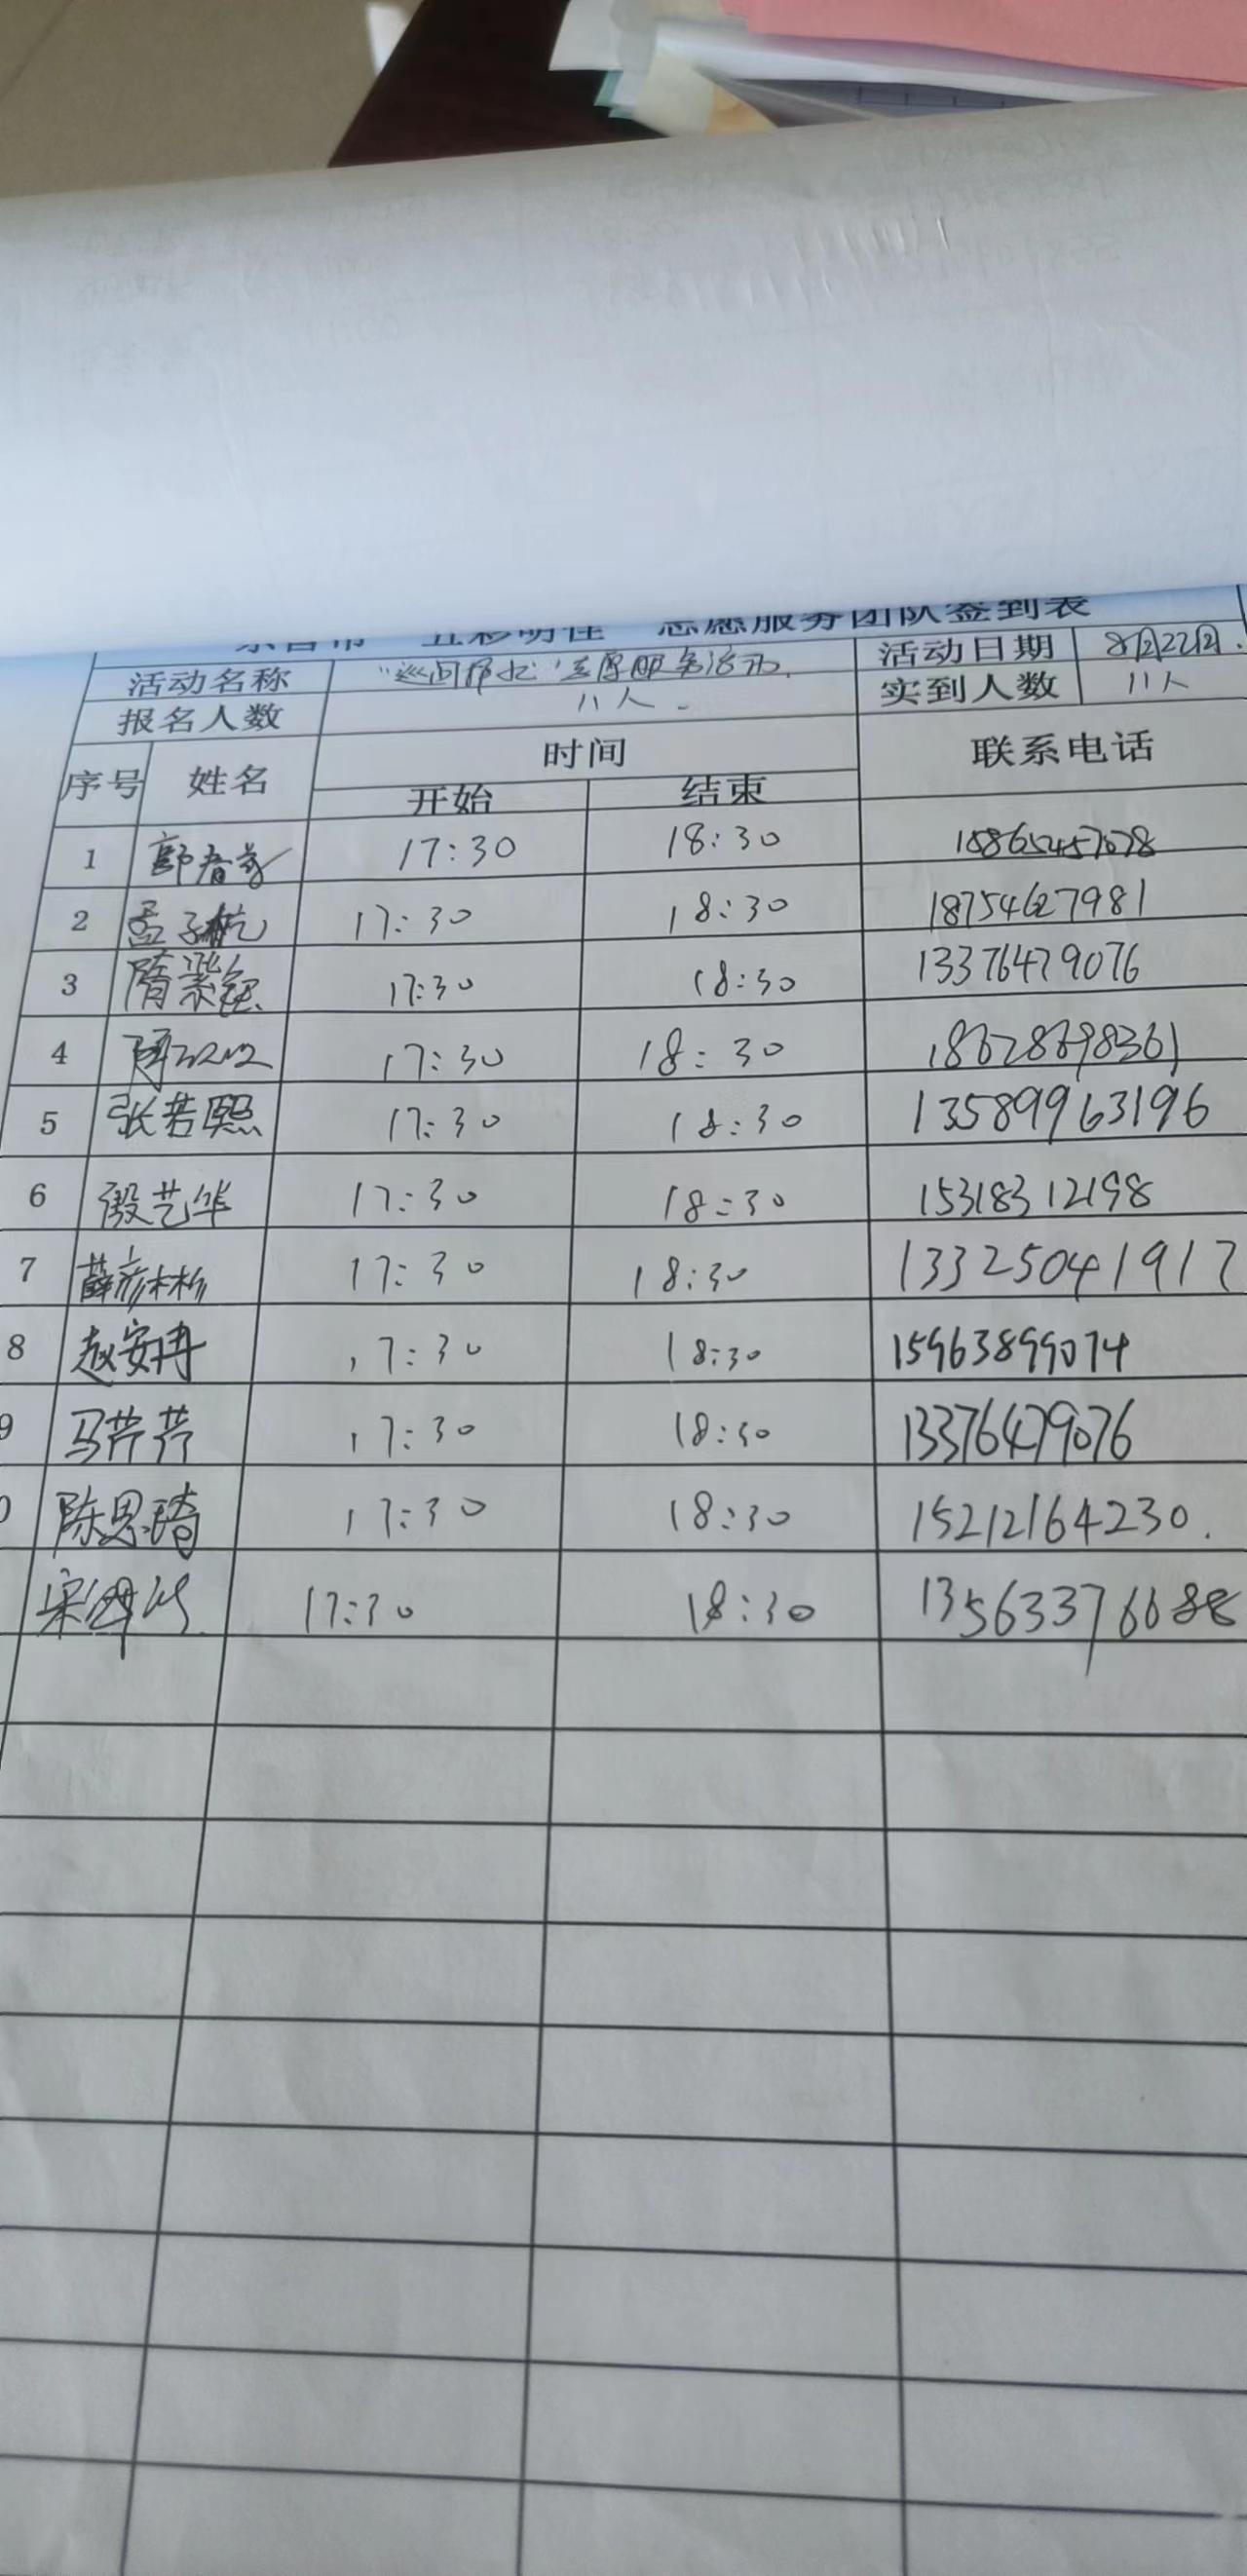 志愿服务团队签到表
活动名称 志愿服务活动 活动日期 8月22日.
报名人数 11人. 实到人数 11人
序号 姓名 时间 联系电话
开始 结束
1 17:30 18:30
2 孟子航 17:30 18:30 18754627981
3 隋紫铤 17:30 18:30 13376479076
4 17:30 18:30 18628698361
5 张若熙 17:30 18:30 13589963196
6 殷艺华 17:30 18:30 15318312198
7 薛彦彬 17:30 18:30 13325041917
8 赵安冉 17:30 18:30 15963899074
9 马芹芹 17:30 18:30 13376479076
陈思琦 17:30 18:30 15212164230.
17:30 18:30 13563376688